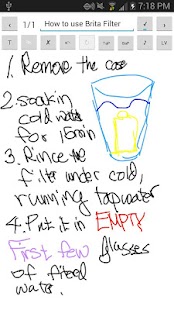 7:18 PM
1/1 How to use Brita Filter
T T B I U LV
1. Remove the case
2. soak in
cold water
for 15min
3. Rince the
filter under cold,
running tap water
4. Put it in EMPTY
First few glasses
of
water.